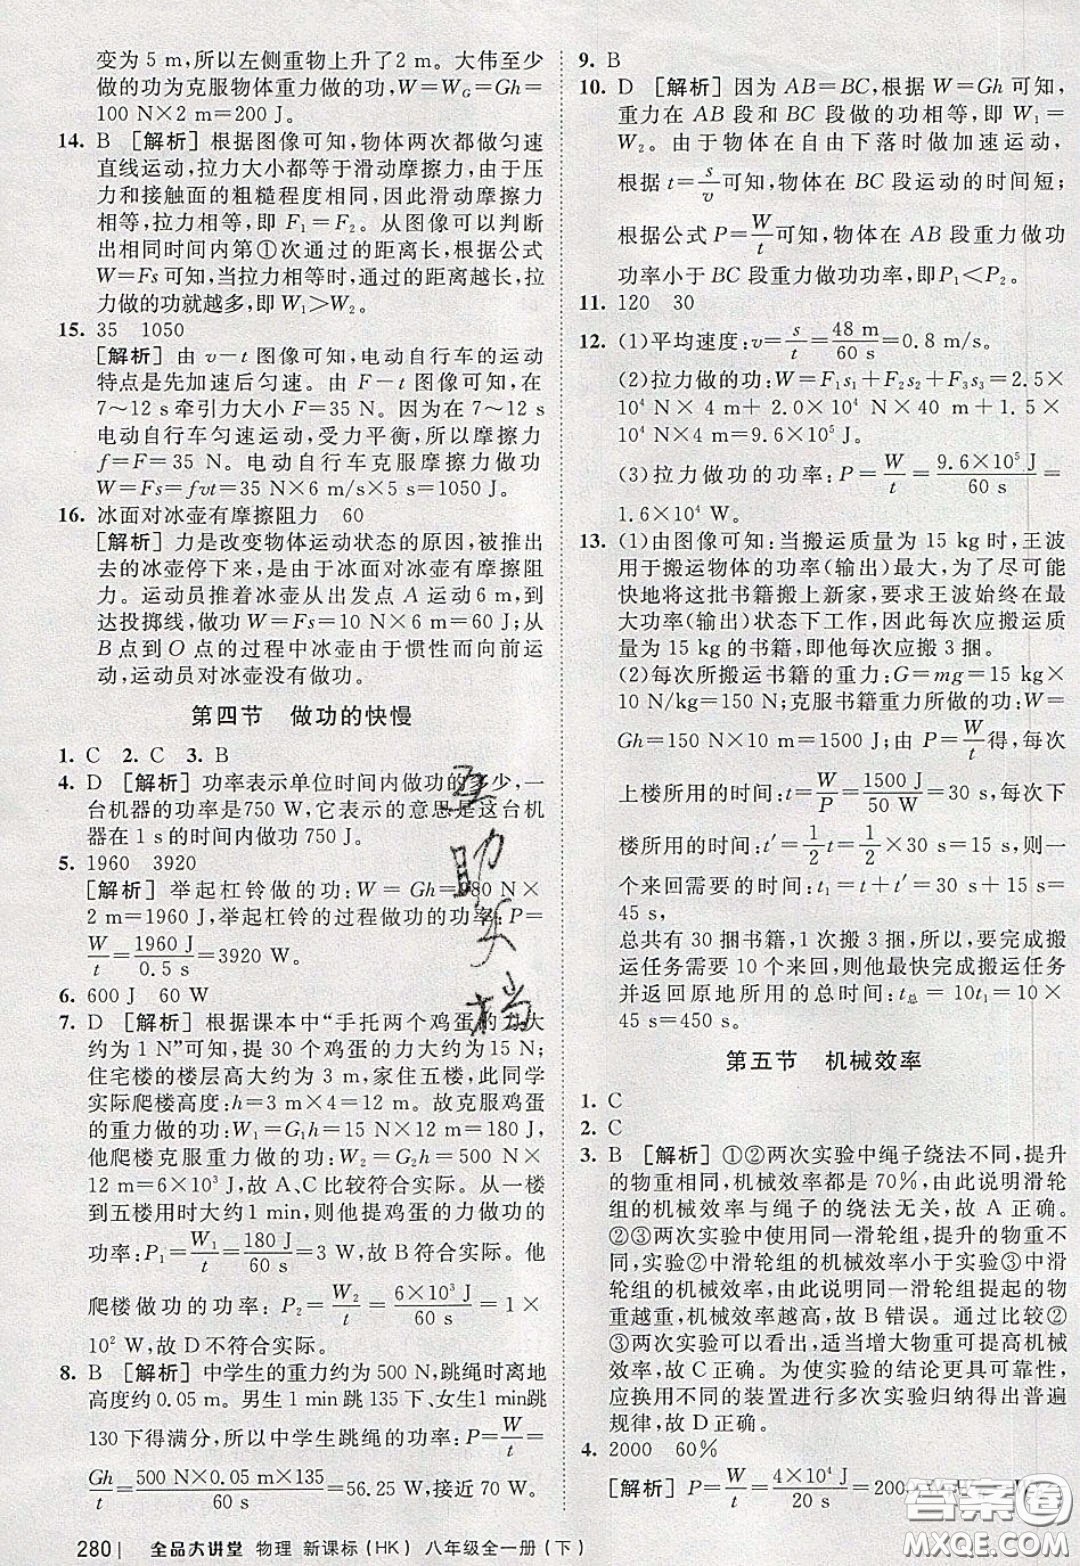 变为 5 m，所以左侧重物上升了2 m。大伟至少
做的功为克服物体重力做的功，W=W_G=Gh=
100 N×2 m=200 J。
14. B [解析] 根据图像可知，物体两次都做匀速
直线运动，拉力大小都等于滑动摩擦力，由于压
力和接触面的粗糙程度相同，因此滑动摩擦力
相等，拉力相等，即 F₁=F₂。从图像可以判断
出相同时间内第①次通过的距离长，根据公式
W=Fs可知，当拉力相等时，距离越长，拉
力做的功就越多，即 W₁>W₂。
15. 35 1050
[解析] 由 v-t 图像可知，电动自行车的运动
特点是先加速后匀速。由 F-t 图像可知，在
7～12 s牵引力大小 F=35 N。因为在7～12 s
电动自行车匀速运动，受力平衡，所以摩擦力
f=F=35 N。电动自行车克服摩擦力做功
W=Fs=fvt=35 N×6 m/s×5 s=1050 J。
16. 冰面对冰壶有摩擦阻力 60
[解析] 力是改变物体运动状态的原因，被推出
去的冰壶停下来，是由于冰面对冰壶有摩擦阻
力。运动员推着冰壶从出发点 A 运动 6 m，到
达投掷线，做功 W=Fs=10 N×6 m=60 J；从
B点到 O 点的过程中冰壶由于惯性而向前运
动，运动员对冰壶没有做功。
第四节 做功的快慢
1. C 2. C 3. B
4. D [解析] 功率表示单位时间内做功的多少，一
台机器的功率是750 W，它表示的意思是这台机
器在 1 s 的时间内做功 750 J。
5. 1960 3920
[解析] 举起杠铃做的功：W=Gh=980 N×
2 m=1960 J，举起杠铃的过程做功的功率：P=
W/t=1960 J/0.5 s=3920 W。
6. 600 J 60 W
7. D [解析] 根据课本中“手托两个鸡蛋的力大
约为 1 N”可知，提 30 个鸡蛋的力大约为 15 N；
住宅楼的楼层高大约为 3 m，家住五楼，此同学
实际爬楼高度：h=3 m×4=12 m。故克服鸡蛋
的重力做的功：W₁=G₁h=15 N×12 m=180 J，
他爬楼克服重力做的功：W₂=G₂h=500 N×
12 m=6×10³ J，故 A、C 比较符合实际。从一楼
到五楼用时大约1 min，则他提鸡蛋的力做功的
功率：P₁=W₁/t=180 J/60 s=3 W，故 B 符合实际。他
爬楼做功的功率：P₂=W₂/t=6×10³ J/60 s=1×
10² W，故 D 不符合实际。
8. B [解析] 中学生的重力约为 500 N，跳绳时离地
高度约0.05 m。男生1 min跳135下、女生1 min跳
130下得满分，所以中学生跳绳的功率约为 P=W/t=
Gh/t=500 N×0.05 m×135/60 s=56.25 W，接近 70 W。
9. B
10. D [解析] 因为 AB=BC，根据 W=Gh 可知，
重力在 AB 段和 BC 段做的功相等，即 W₁=
W₂。由于物体在自由下落时做加速运动，
根据 t=s/v可知，物体在 BC 段运动的时间短；
根据公式 P=W/t可知，物体在 AB 段重力做功
功率小于 BC 段重力做功功率，即P₁<P₂。
11. 120 30
12. (1)平均速度：v=s/t=48 m/60 s=0.8 m/s。
(2)拉力做的功：W=F₁s₁+F₂s₂+F₃s₃=2.5×
10⁴ N×4 m+2.0×10⁴ N×40 m+1.5×
10⁴ N×4 m=9.6×10⁵ J。
(3)拉力做功的功率：P=W/t=9.6×10⁵ J/60 s=
1.6×10⁴ W。
13. (1)由图像可知：当搬运质量为 15 kg 时，王波
用于搬运物体的功率(输出)最大，为了尽可能
快地将这批书籍搬上新家，要求王波始终在最
大功率(输出)状态下工作，因此每次应搬运质
量为 15 kg 的书籍，即他每次应搬 3 捆。
(2)每次所搬运书籍的重力：G=mg=15 kg×
10 N/kg=150 N；克服书籍重力所做的功：W=
Gh=150 N×10 m=1500 J；由 P=W/t得，每次
上楼所用的时间：t=W/P=1500 J/50 W=30 s，每次下
楼所用的时间：t′=1/2t=1/2×30 s=15 s，则一
个来回需要的时间：t₁=t+t′=30 s+15 s=
45 s，
总共有 30 捆书籍，1 次搬 3 捆，所以，要完成搬
运任务需要 10 个来回，则他最快完成搬运任务
并返回原地所用的总时间：t总=10t₁=10×
45 s=450 s。
第五节 机械效率
1. C
2. C
3. B [解析] ①②两次实验中绳子绕法不同，提升
的物重相同，机械效率都是 70%，由此说明滑轮
组的机械效率与绳子的绕法无关，故 A 正确。
②③两次实验中使用同一滑轮组，提升的物重不
同，实验②中滑轮组的机械效率小于实验③中滑
轮组的机械效率，由此说明同一滑轮组提起的物
重越重，机械效率越高，故 B 错误。通过比较②
③两次实验可以看出，适当增大物重可提高机械
效率，故 C 正确。为使实验的结论更具可靠性，
应换用不同的装置进行多次实验归纳得出普遍
规律，故 D 正确。
4. 2000 60%
[解析] P=W/t=4×10⁴ J/20 s=200
互
助
文
档
答案圈
MXQE.COM
280 | 全品大讲堂 物理 新课标(HK) 八年级全一册(下)